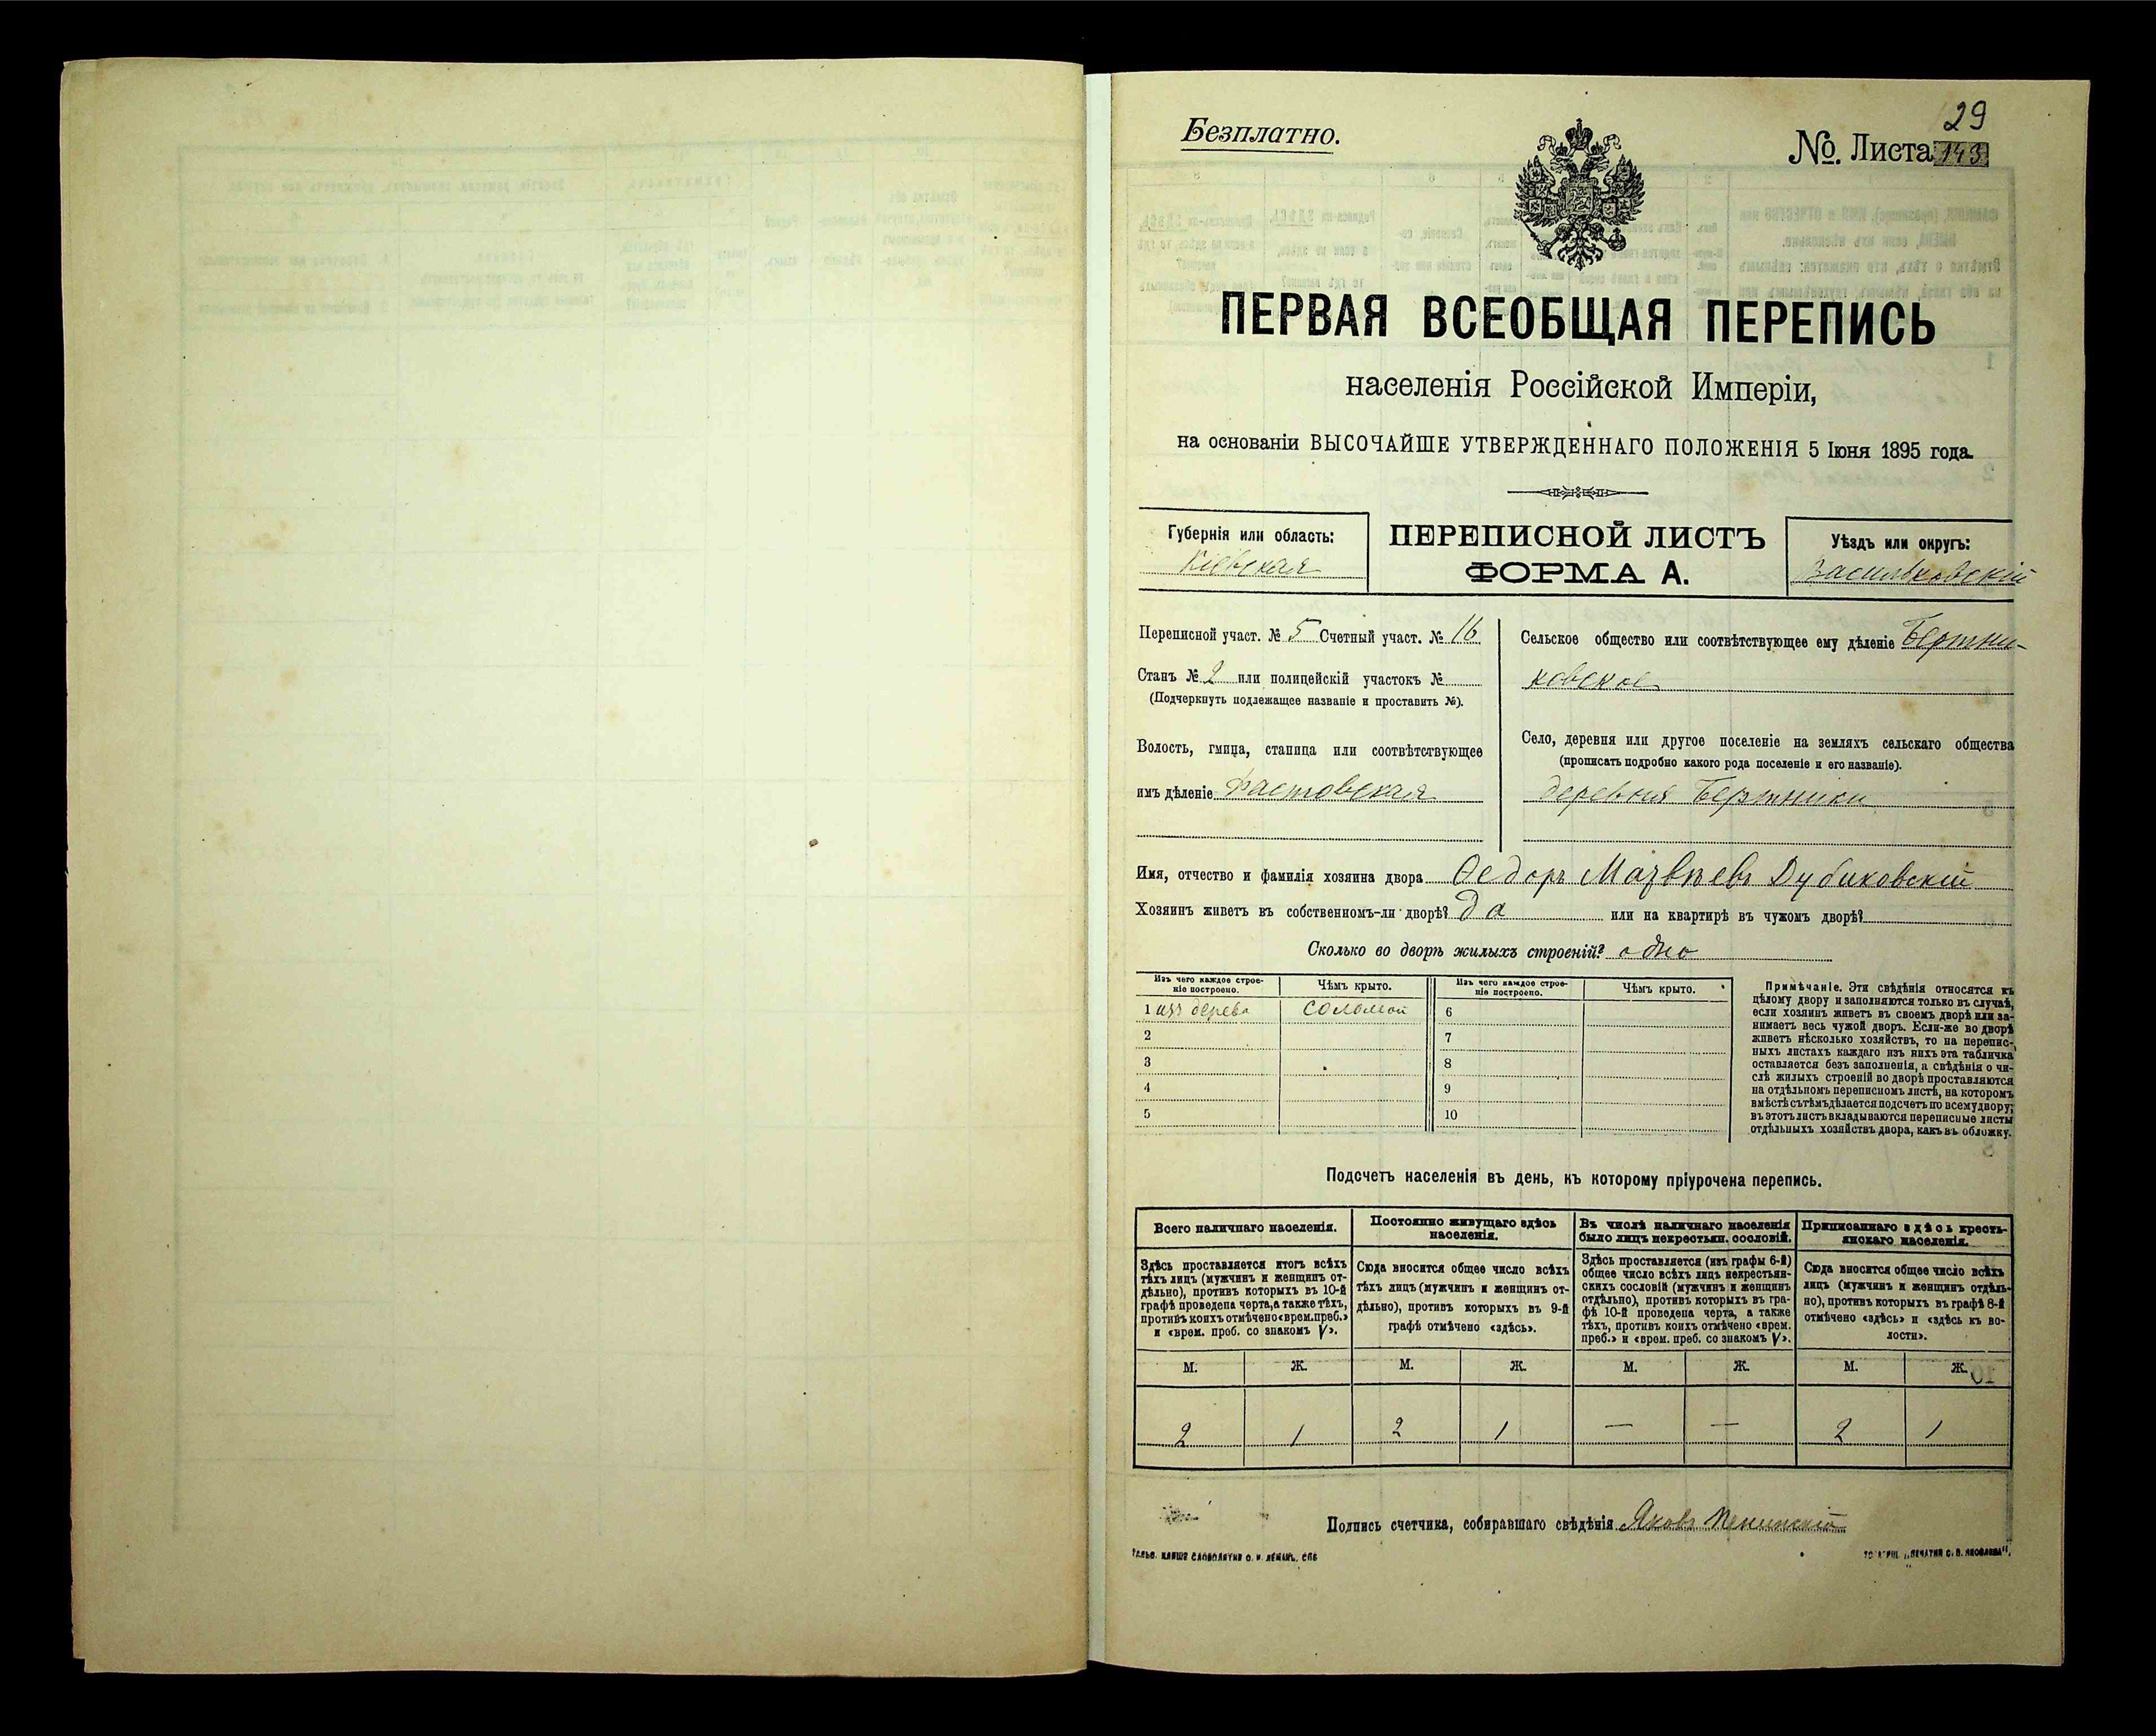 29
Безплатно.
№. Листа 143
ПЕРВАЯ ВСЕОБЩАЯ ПЕРЕПИСЬ
населенія Россійской Имперіи,
на основаніи ВЫСОЧАЙШЕ УТВЕРЖДЕННАГО ПОЛОЖЕНІЯ 5 Іюня 1895 года.
Губернія или область:
Кіевская
ПЕРЕПИСНОЙ ЛИСТЪ
ФОРМА А.
Уѣздъ или округъ:
Васильковскій
Переписной участ. № 5 Счетный участ. № 16
Станъ № 2 или полицейскій участокъ №
(Подчеркнуть подлежащее названіе и проставить №).
Волость, гмина, станица или соотвѣтствующее
имъ дѣленіе Фастовская
Сельское общество или соотвѣтствующее ему дѣленіе Бертни-
ковское
Село, деревня или другое поселеніе на земляхъ сельскаго общества
(прописать подробно какого рода поселеніе и его названіе).
деревня Бертники
Имя, отчество и фамилія хозяина двора Ѳедоръ Матвѣевъ Дубиковскій
Хозяинъ живетъ въ собственномъ-ли дворѣ? да или на квартирѣ въ чужомъ дворѣ?
Сколько во дворѣ жилыхъ строеній? одно
Изъ чего каждое строе-
ніе построено.
Чѣмъ крыто.
Изъ чего каждое строе-
ніе построено.
Чѣмъ крыто.
1 изъ дерева соломой 6
2 7
3 8
4 9
5 10
Примѣчаніе. Эти свѣдѣнія относятся къ
цѣлому двору и заполняются только въ случаѣ,
если хозяинъ живетъ въ своемъ дворѣ или за-
нимаетъ весь чужой дворъ. Если-же во дворѣ
живетъ нѣсколько хозяйствъ, то на перепис-
ныхъ листахъ каждаго изъ нихъ эта табличка
оставляется безъ заполненія, а свѣдѣнія о чи-
слѣ жилыхъ строеній во дворѣ проставляются
на отдѣльномъ переписномъ листѣ, на которомъ
вмѣстѣ съ тѣмъ дѣлается подсчетъ по всему двору;
въ этотъ листъ вкладываются переписные листы
отдѣльныхъ хозяйствъ двора, какъ въ обложку.
Подсчетъ населенія въ день, къ которому пріурочена перепись.
Всего наличнаго населенія.
Здѣсь проставляется итогъ всѣхъ
тѣхъ лицъ (мужчинъ и женщинъ от-
дѣльно), противъ которыхъ въ 10-й
графѣ проведена черта, а также тѣхъ,
противъ коихъ отмѣчено «врем. преб.»
и «врем. преб. со знакомъ V».
Постоянно живущаго здѣсь
населенія.
Сюда вносится общее число всѣхъ
тѣхъ лицъ (мужчинъ и женщинъ от-
дѣльно), противъ которыхъ въ 9-й
графѣ отмѣчено «здѣсь».
Въ числѣ наличнаго населенія
было лицъ некрестьян. сословій.
Здѣсь проставляется (изъ графы 6-й)
общее число всѣхъ лицъ некрестьян-
скихъ сословій (мужчинъ и женщинъ
отдѣльно), противъ которыхъ въ гра-
фѣ 10-й проведена черта, а также
тѣхъ, противъ коихъ отмѣчено «врем.
преб.» и «врем. преб. со знакомъ V».
Приписаннаго здѣсь кресть-
янскаго населенія.
Сюда вносится общее число всѣхъ
лицъ (мужчинъ и женщинъ отдѣль-
но), противъ которыхъ въ графѣ 8-й
отмѣчено «здѣсь» и «здѣсь къ во-
лости».
М. Ж. М. Ж. М. Ж. М. Ж.
2 1 2 1 — — 2 1
Подпись счетчика, собиравшаго свѣдѣнія Яковъ